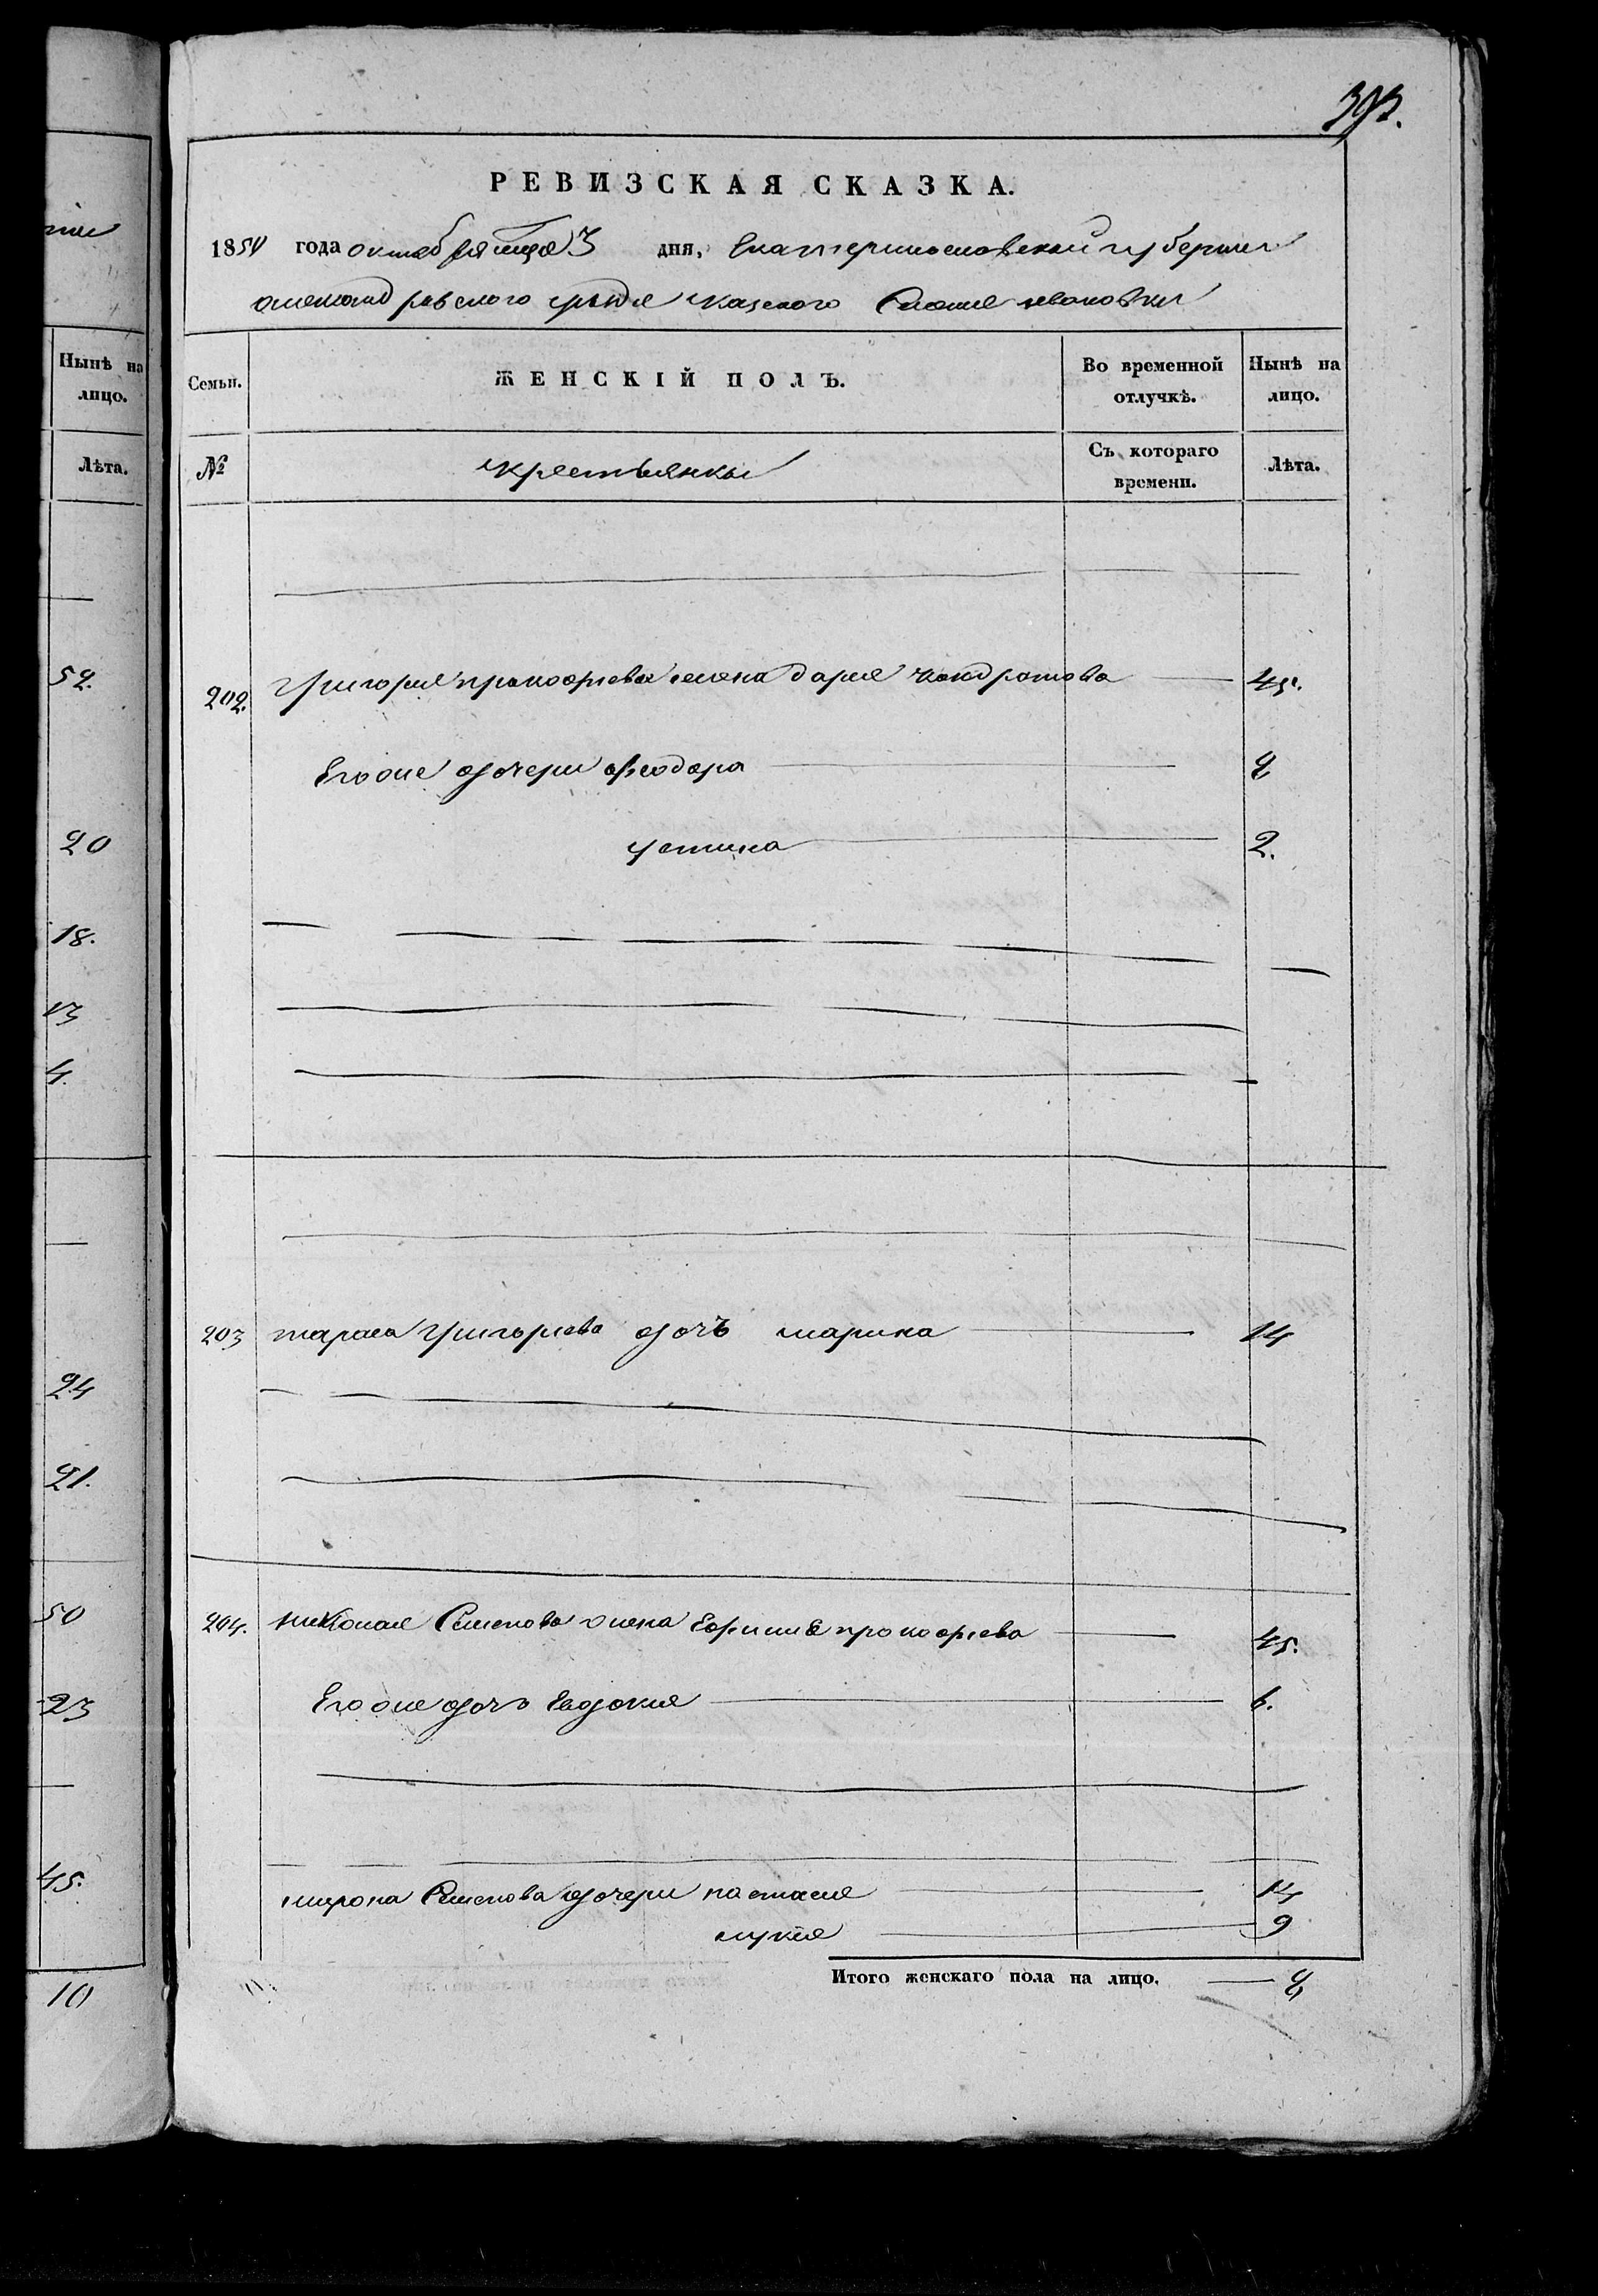 393.
РЕВИЗСКАЯ СКАЗКА.
1850 года октября мца 3 дня, Екатеринославской губернии
александровского уезда казенного Селения ивановки
Нынѣ на лицо.
Семьи.
ЖЕНСКІЙ ПОЛЪ.
Во временной отлучкѣ.
Нынѣ на лицо.
Лѣта.
№
крестьянки
Съ котораго времени.
Лѣта.
52.
202. григория прокофьева жена дарья кондратова 45.
Его же дочери феодора 8
20
устина 2.
18.
13
4.
203 тараса григорьева дочъ марина 14
24
21.
50
204. николая Семенова жена Ефимия прокофьева 45.
23
Его же дочь Евдокия 6.
45.
мирона Семенова дочери настасия 14
лукия 9
Итого женскаго пола на лицо. 8
10